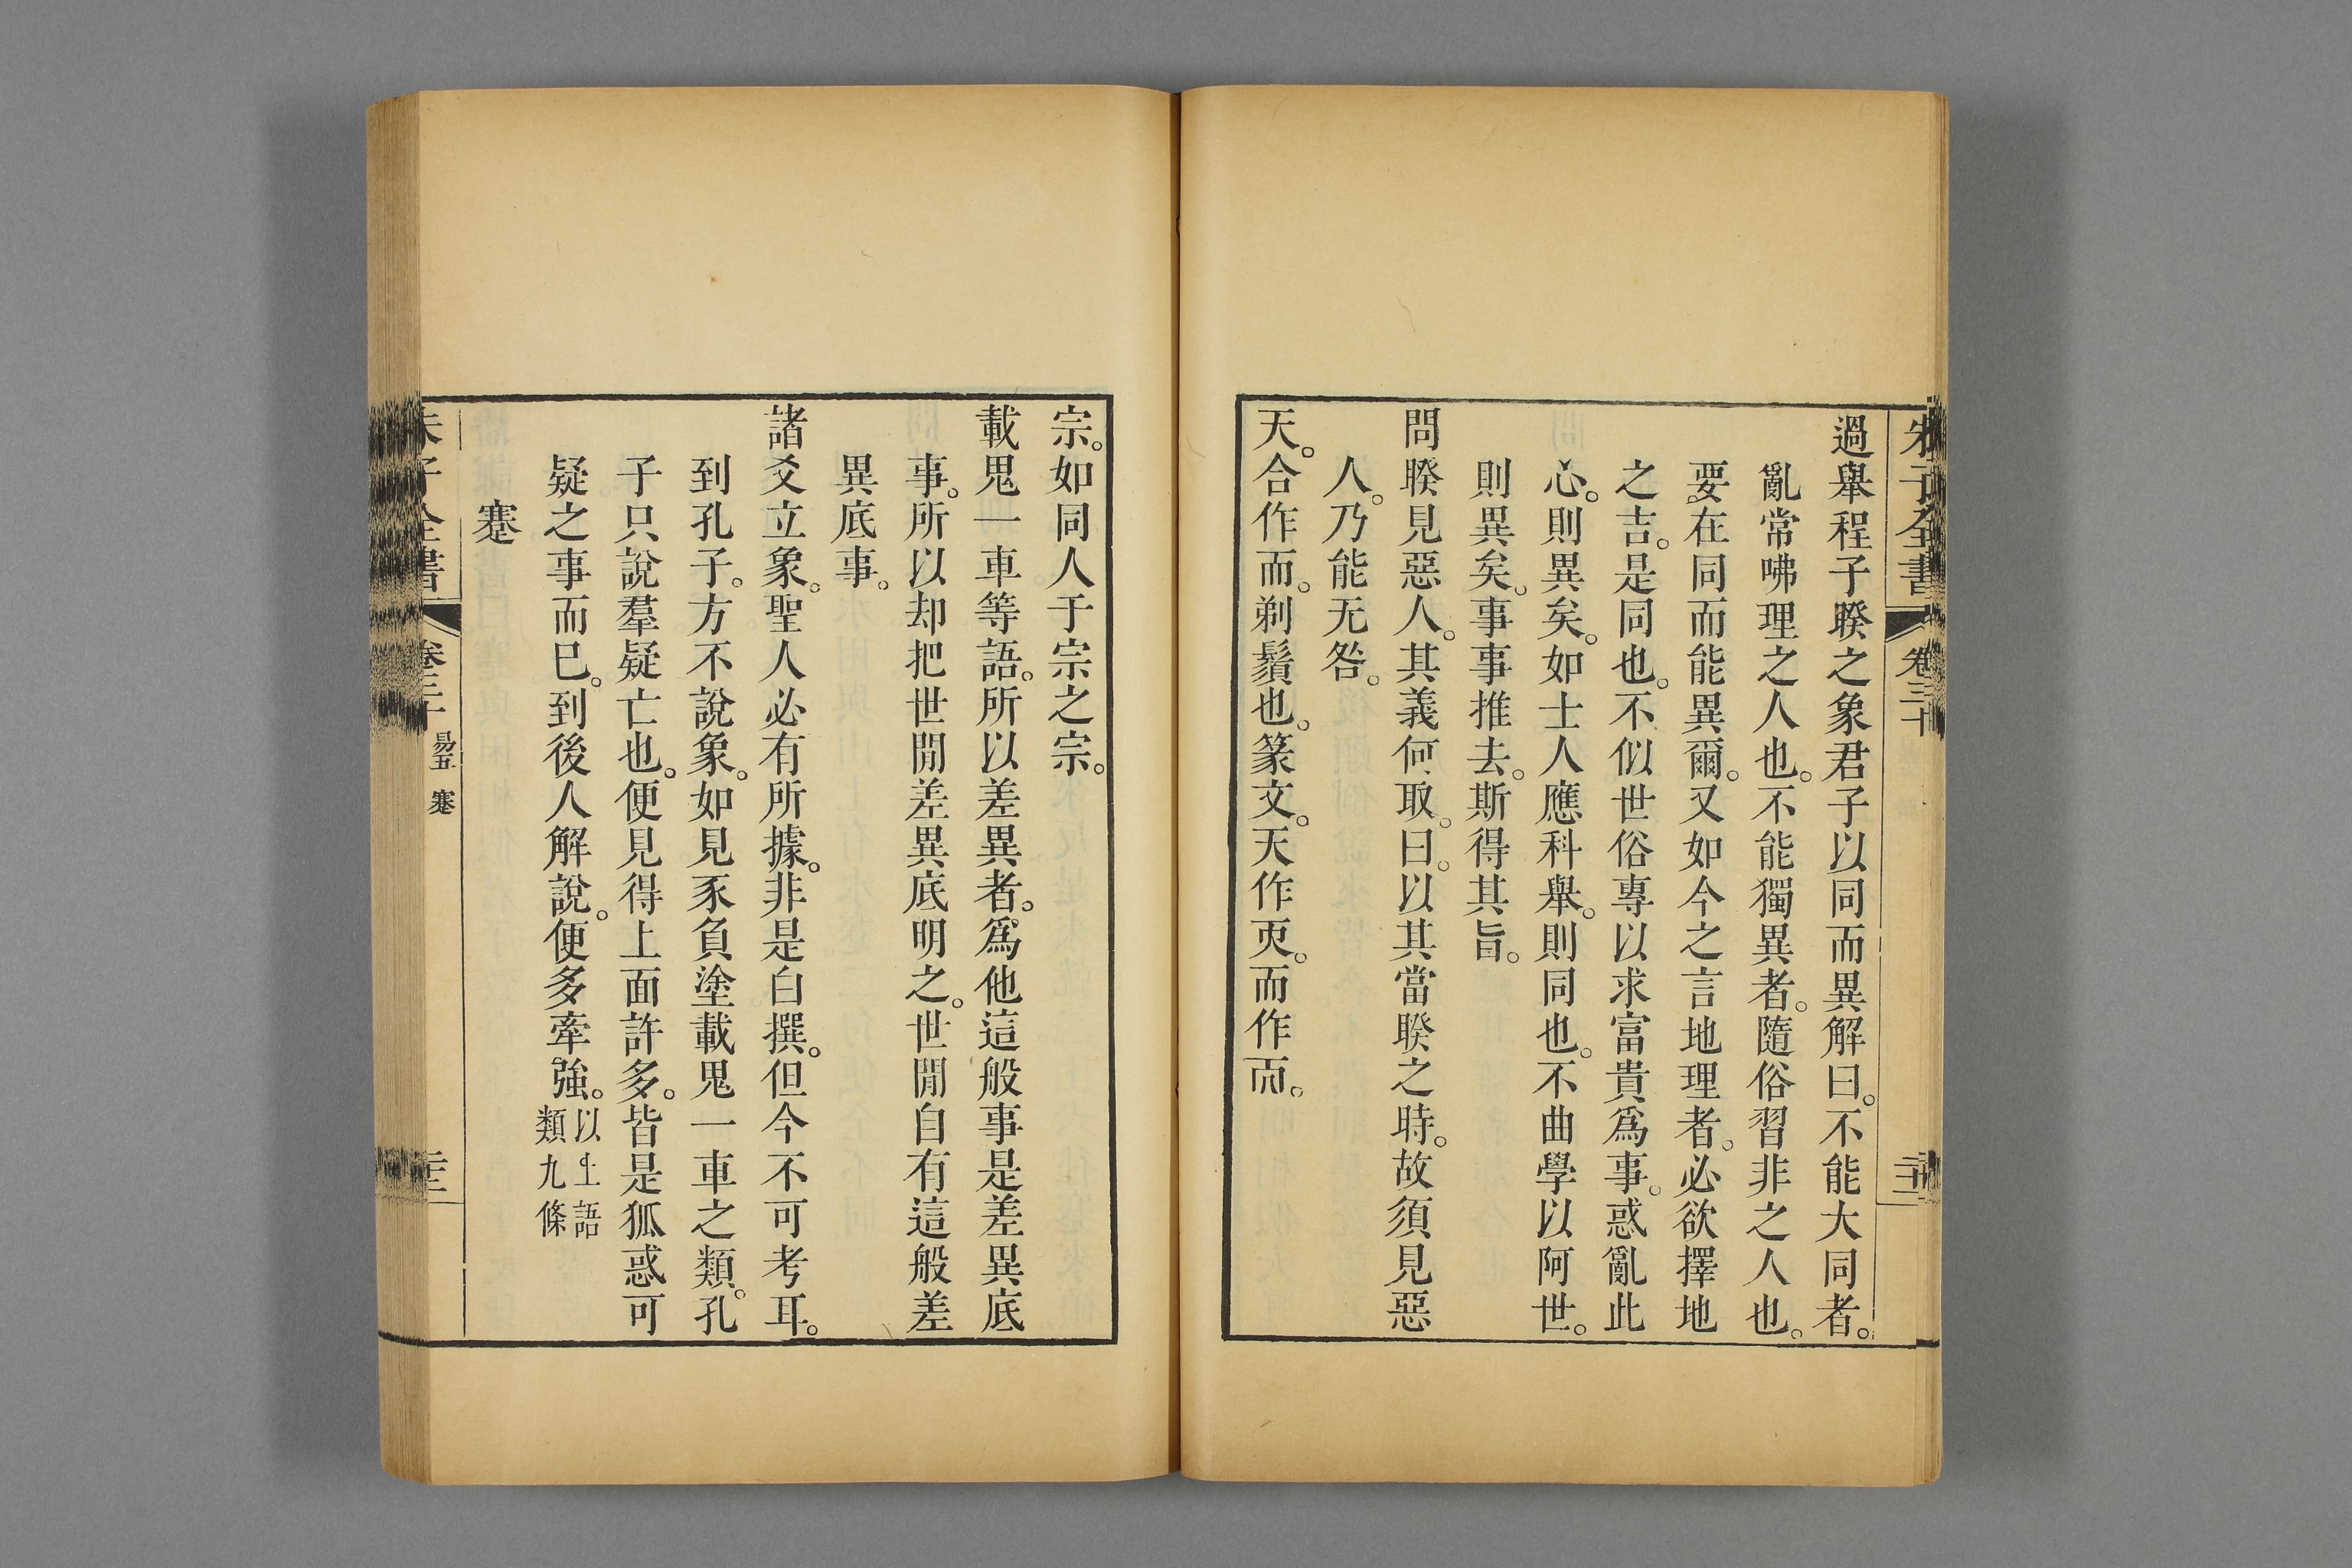 朱子全書 卷三十
過舉程子睽之象君子以同而異解曰。不能大同者。
亂常咈理之人也。不能獨異者。隨俗習非之人也。
要在同而能異爾。又如今之言地理者。必欲擇地
之吉。是同也。不似世俗專以求富貴爲事。惑亂此
心。則異矣。如士人應科舉。則同也。不曲學以阿世。
則異矣。事事推去。斯得其旨。
問睽見惡人。其義何取。曰。以其當睽之時。故須見惡
人。乃能无咎。
天。合作而。剃鬚也。篆文。天作𠕅。而作而。
宗。如同人于宗之宗。
載鬼一車等語。所以差異者。爲他這般事是差異底
事。所以却把世閒差異底明之。世閒自有這般差
異底事。
諸爻立象。聖人必有所據。非是白撰。但今不可考耳。
到孔子。方不說象。如見豕負塗載鬼一車之類。孔
子只說羣疑亡也。便見得上面許多。皆是狐惑可
疑之事而已。到後人解說。便多牽強。以上語
類九條
蹇
朱子全書 卷三十 易五 蹇